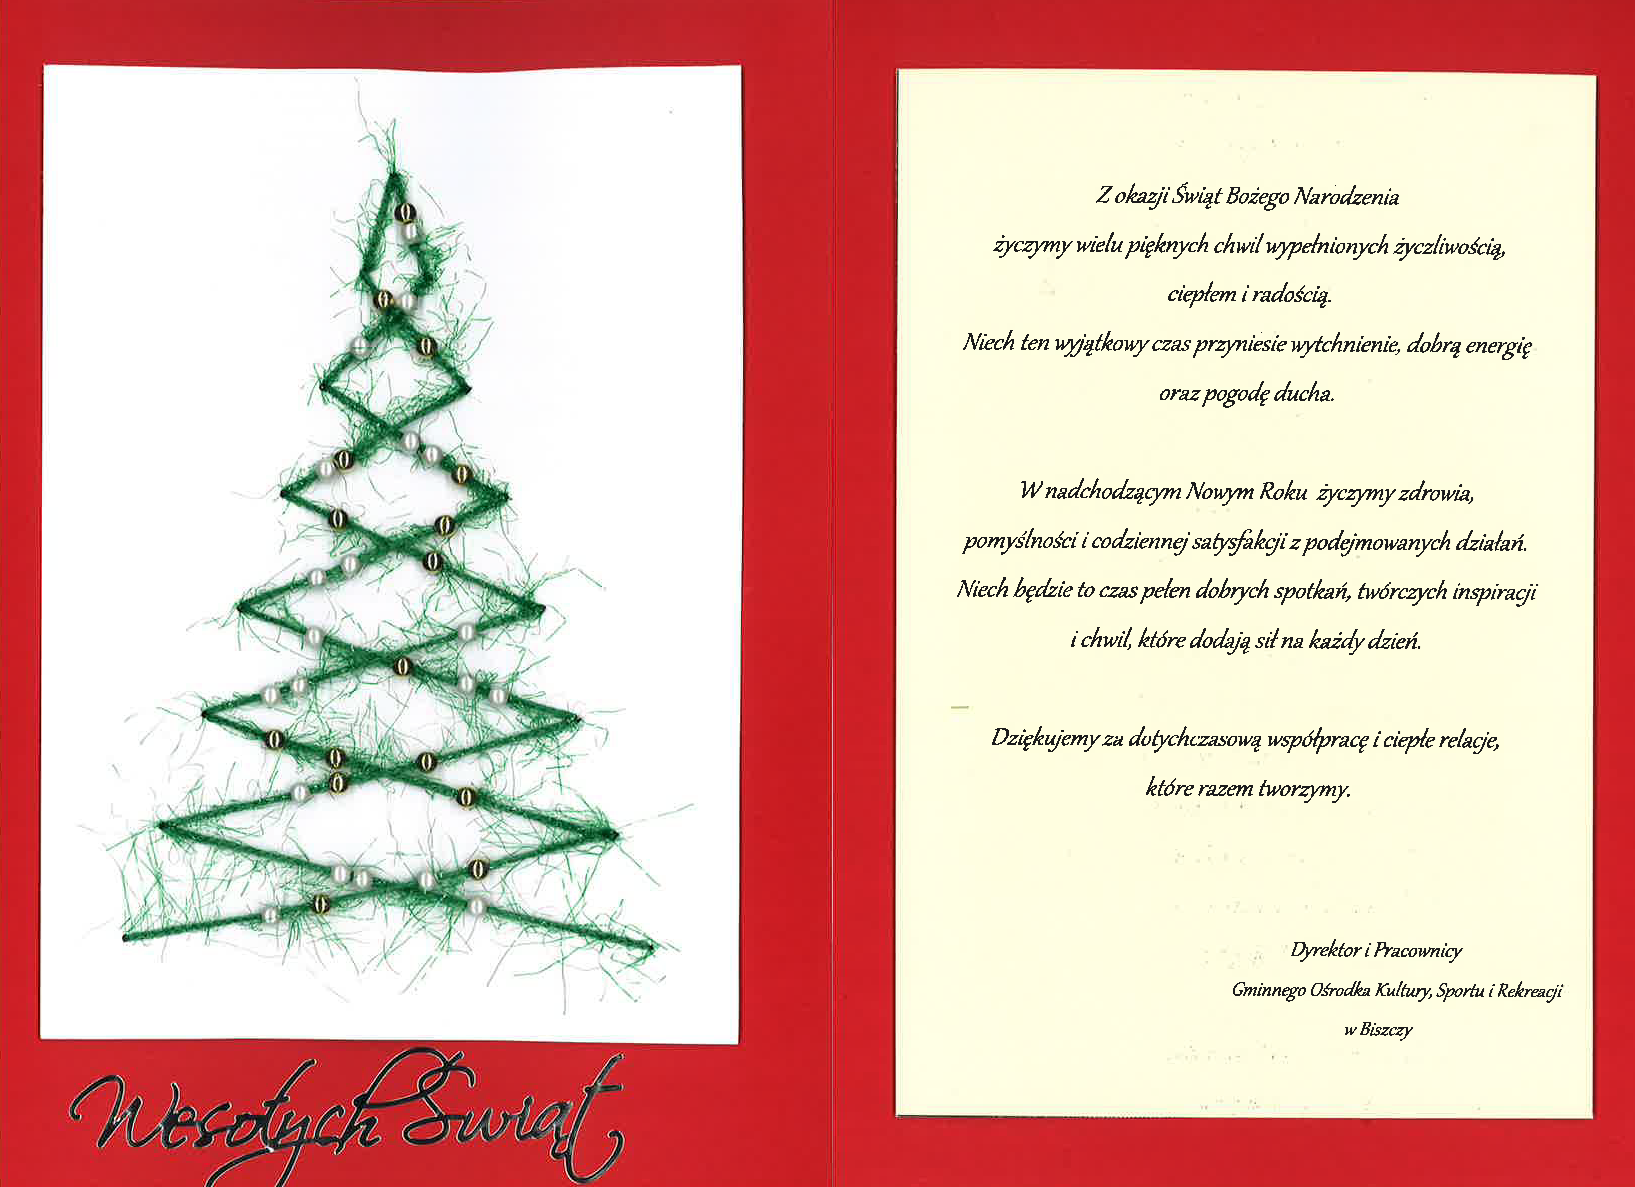 Wesołych Świąt
Z okazji Świąt Bożego Narodzenia
życzymy wielu pięknych chwil wypełnionych życzliwością,
ciepłem i radością.
Niech ten wyjątkowy czas przyniesie wytchnienie, dobrą energię
oraz pogodę ducha.
W nadchodzącym Nowym Roku życzymy zdrowia,
pomyślności i codziennej satysfakcji z podejmowanych działań.
Niech będzie to czas pełen dobrych spotkań, twórczych inspiracji
i chwil, które dodają sił na każdy dzień.
Dziękujemy za dotychczasową współpracę i ciepłe relacje,
które razem tworzymy.
Dyrektor i Pracownicy
Gminnego Ośrodka Kultury, Sportu i Rekreacji
w Biszczy